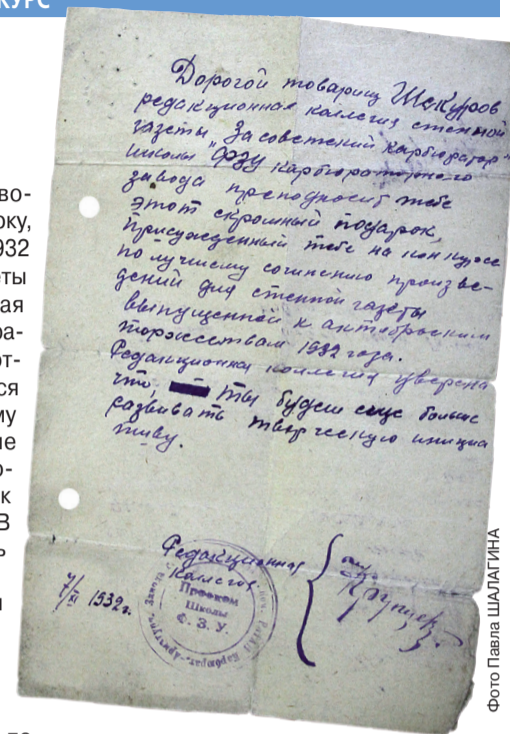 КУРС
во-
рку,
1932
еты
ная
ра-
от-
ся
му
ие
о-
к
В
ь
Дорогой товарищ Шакуров
редакционная каллегия стенной
газеты „За советский карбюратор"
школы "ФЗУ карбюраторного
завода преподносит тебе
этот скромный подарок,
присужденный тебе на конкурсе
по лучшему сочинению произве-
дений для стенной газеты
выпущенной к октябрьским
торжествам 1932 года.
Редакционна коллегия уверена
что, ты будеш еще больше
развивать творческую инициа
тиву.
Редакционная
Каллегия
7/XI 1932г.
Профком
Школы
Ф. З. У.
Фото Павла ШАЛАГИНА